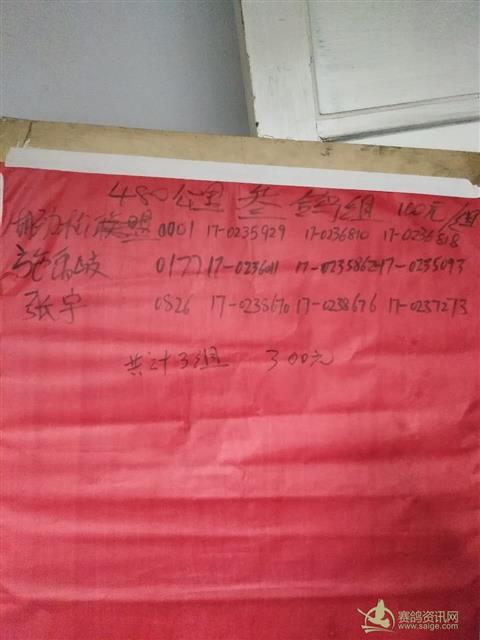 480公里 叁 鸽组 100元组
联盟 0001 17-0235929 17-0236810 17-0236818
0177 17-0235093
张宇 0826 17-0238670 17-0238676 17-0237273
共计3组 300元
赛鸽资讯网
www.saige.com